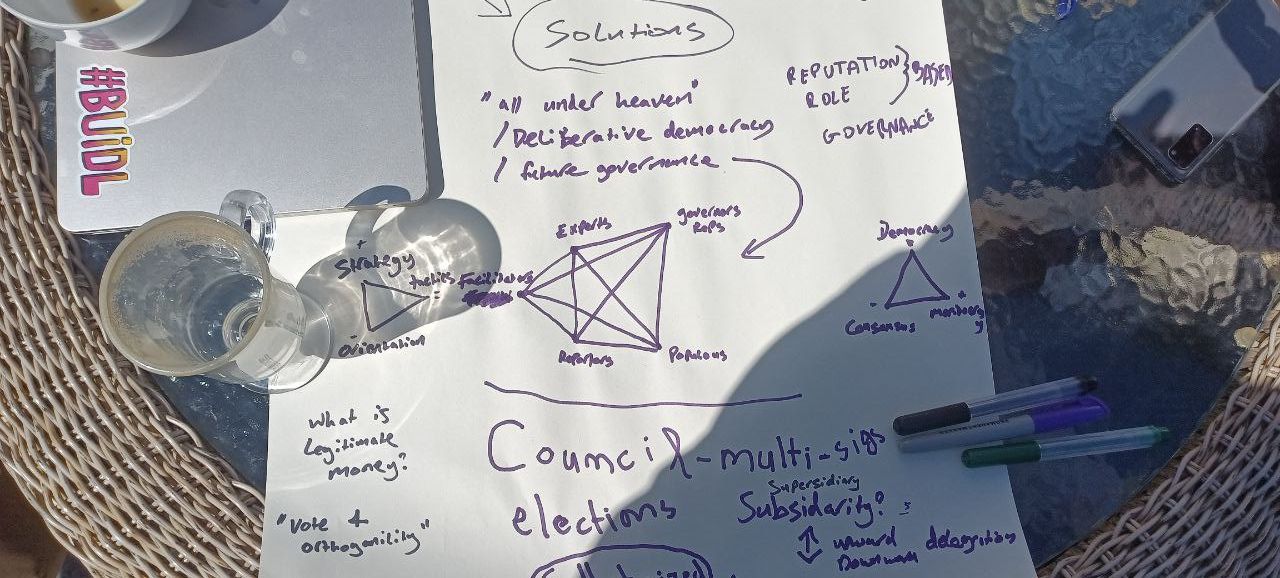 Solutions
#BUiDL
REPUTATION } BASED
ROLE
GOVERNANCE
"all under heaven"
/ Deliberative democracy
/ future governance
Experts
governors
Reps
Strategy
+
tactics
=
Orientation
-
Facilitators
Reporters
Populous
Democracy
=
Consensus
-
+
What is
legitimate
money?
"Vote &
orthogonility"
Council-multi-sigs
elections
Supersidiary
Subsidarity?
upward delegation
Downward